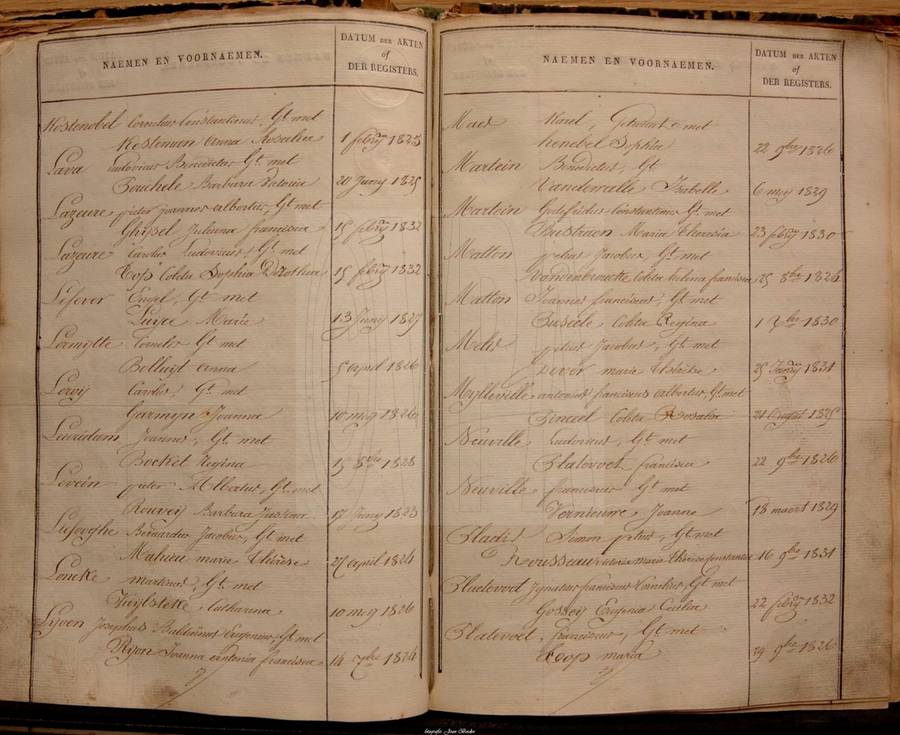 NAEMEN EN VOORNAEMEN.
DATUM DER AKTEN
of
DER REGISTERS.
Kostenobel Cornelius Constantinus, Gt. met
Kosteman Anna Rosalia 1 febry 1825
Lava Ludovicus Benedictus Gt. met
Bouchele Barbara 20 Juny 1825
Lazeure pieter Joannes albertus, Gt. met
Ghysel Juliana francisca 15 febry 1832
Lazeure Carolus Ludovicus, Gt. met
Cop Coleta Sophia Dorothea 15 febry 1832
Lefever Engel, Gt. met
Luyce Marie 13 Juny 1827
Lermytte Cornelis Gt. met
Bolluyt Anna 5 april 1826
Leroy Carolus Gt. met
Garmyn Joanna 10 mey 1826
Leuridam Joannes, Gt. met
Bockel Regina 15 8bre 1828
Levein pieter Albertus, Gt. met
Rouvey Barbara Justina 17 Juny 1823
Liefooghe Bernardus Jacobus, Gt. met
Mahieu marie Thérèse 27 april 1824
Loncke martinus, Gt. met
Catharina 10 mey 1826
Lyven Josephus Gt. met
Ryon Joanna antonia francisca 14 7bre 1824
NAEMEN EN VOORNAEMEN.
DATUM DER AKTEN
of
DER REGISTERS.
Maes Karel, met
henebel Sophia 22 9bre 1826
Martein Benedictus, Gt
Vandercelle Isabelle 6 mey 1829
Martein Godefridus Constantinus Gt. met
Bustraen Maria Theresia 23 febry 1830
Matton petrus Jacobus, Gt. met
Vandenbrouck Coleta helena francisca 25 8bre 1826
Matton Joannes franciscus, Gt. met
Buseele Coleta Regina 1 Xbre 1830
Melis petrus Jacobus, Gt. met
Dever maria 25 Janry 1831
Mylleville antonius franciscus albertus, Gt. met
Coleta Rosalia
Neuville Ludovicus, Gt. met
Platevoet francisca 22 9bre 1826
Neuville franciscus Gt. met
Vernieuwe Joanna 18 maert 1829
Simon pius, Gt. met
Rousseau maria thérèse constantia 16 9bre 1831
Platevoet Ignatius franciscus Cornelius, Gt. met
Gossey Eugenia Cecilia 22 febry 1832
Platevoet franciscus, Gt. met
Coop maria 29 9bre 1826